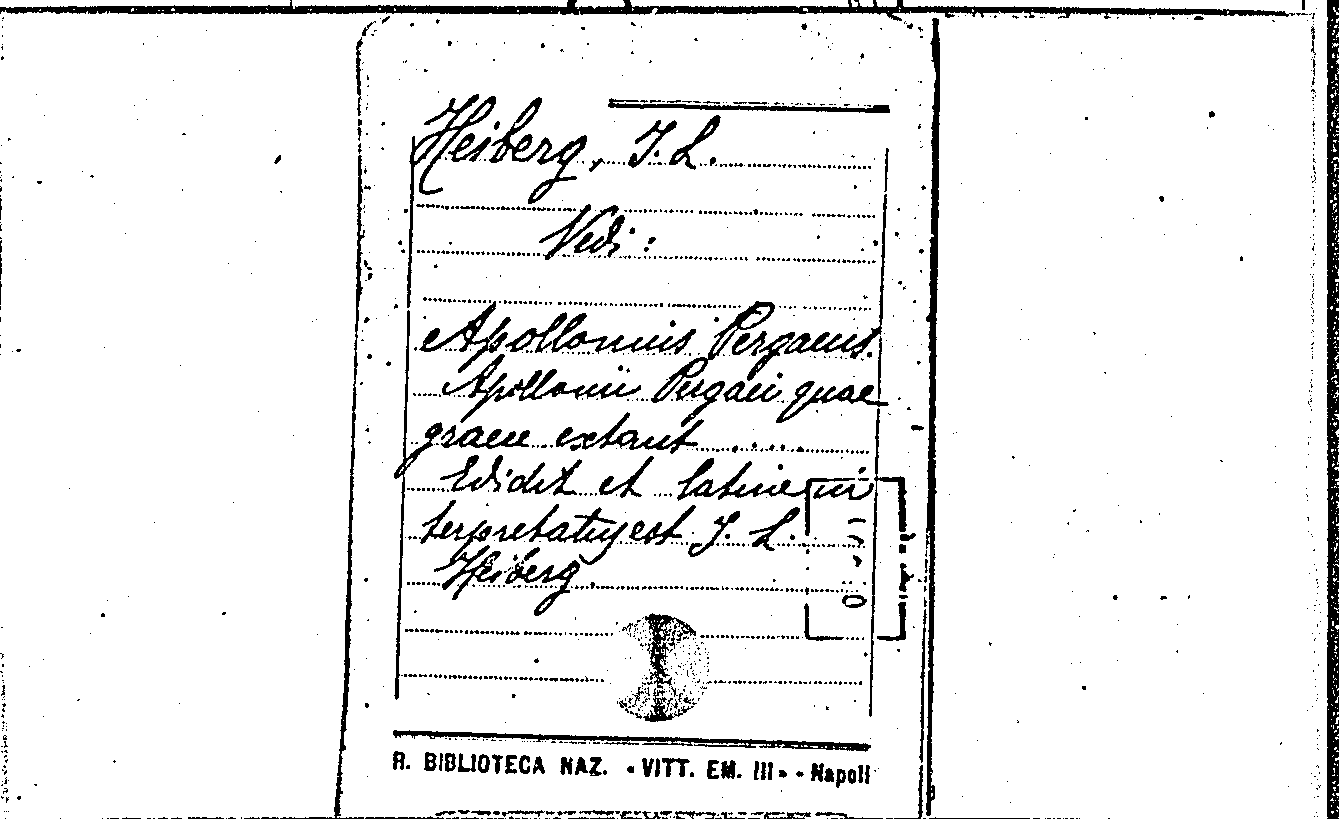 Heiberg, J. L.
Vedi:
Apollonius Pergaeus.
Apollonii Pergaei quae
graece extant .....
Edidit et latine in
terpretatus est J. L.
Heiberg.
R. BIBLIOTECA NAZ. «VITT. EM. III» - Napoli